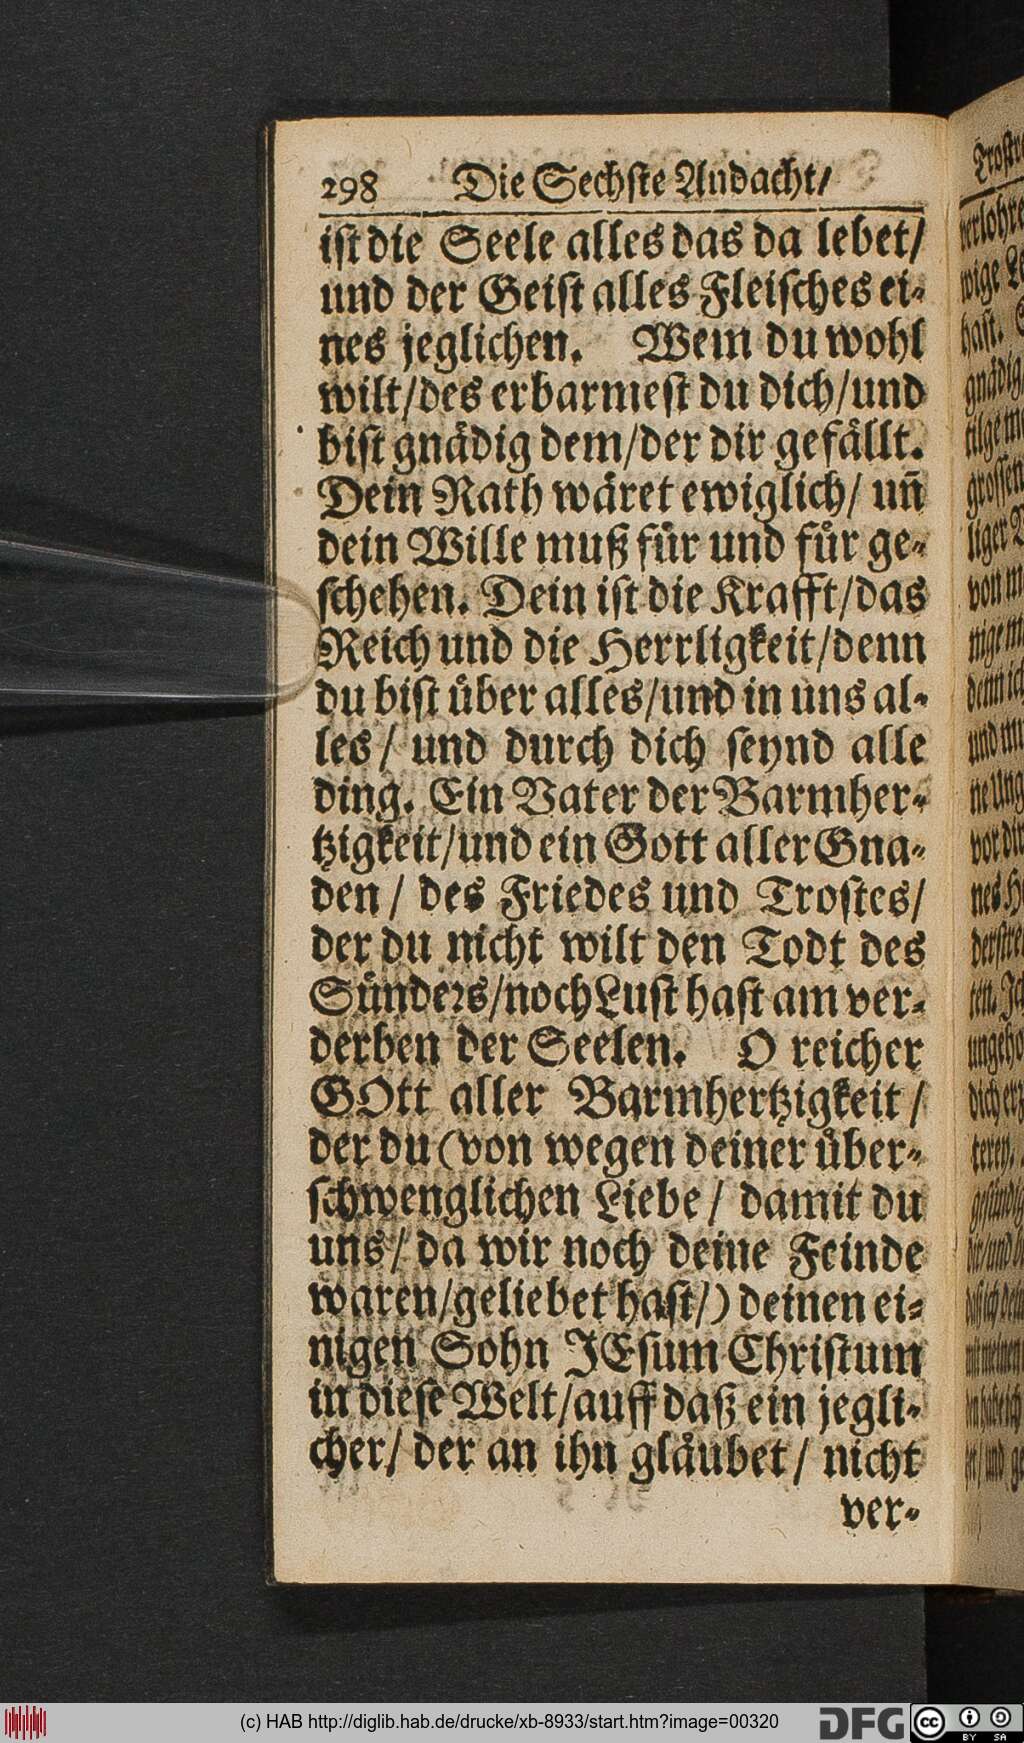 298 Die Sechste Andacht/
ist die Seele alles das da lebet/
und der Geist alles Fleisches ei-
nes jeglichen. Wem du wohl
wilt/des erbarmest du dich/und
bist gnädig dem/der dir gefällt.
Dein Rath wäret ewiglich/ un̄
dein Wille muß für und für ge-
schehen. Dein ist die Krafft/das
Reich und die Herrligkeit/denn
du bist über alles/und in uns al-
les/ und durch dich seynd alle
ding. Ein Vater der Barmher-
tzigkeit/und ein Gott aller Gna-
den/ des Friedes und Trostes/
der du nicht wilt den Todt des
Sünders/noch Lust hast am ver-
derben der Seelen. O reicher
GOtt aller Barmhertzigkeit/
der du (von wegen deiner über-
schwenglichen Liebe/ damit du
uns/ da wir noch deine Feinde
waren/geliebet hast/) deinen ei-
nigen Sohn JEsum Christum
in diese Welt/auff daß ein jegli-
cher/ der an ihn gläubet/ nicht
ver-
(c) HAB http://diglib.hab.de/drucke/xb-8933/start.htm?image=00320
DFG
cc BY SA